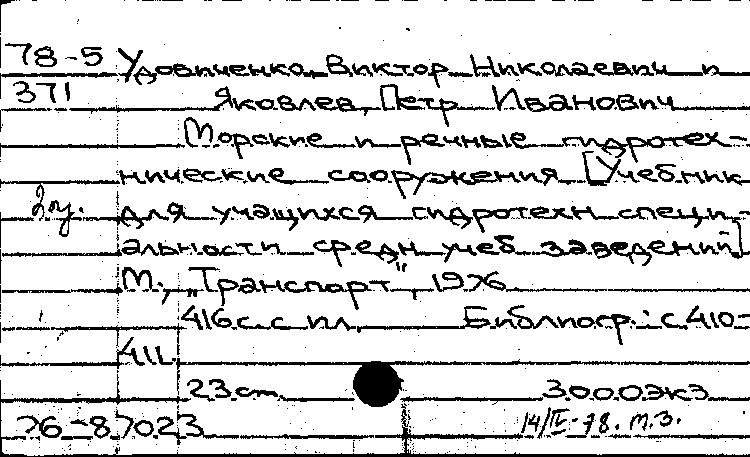 78-5 Удовиченко, Виктор Николаевич и
371 Яковлев, Петр Иванович
Морские и речные гидротех-
нические сооружения [Учебник
для учащихся гидротехн специ-
альности средн учеб заведений]
М., „Транспорт", 1976
416 с. с ил. Библиогр.: с. 410-
411.
23 см 3000 экз
76-87023 14/IV-78. М.З.